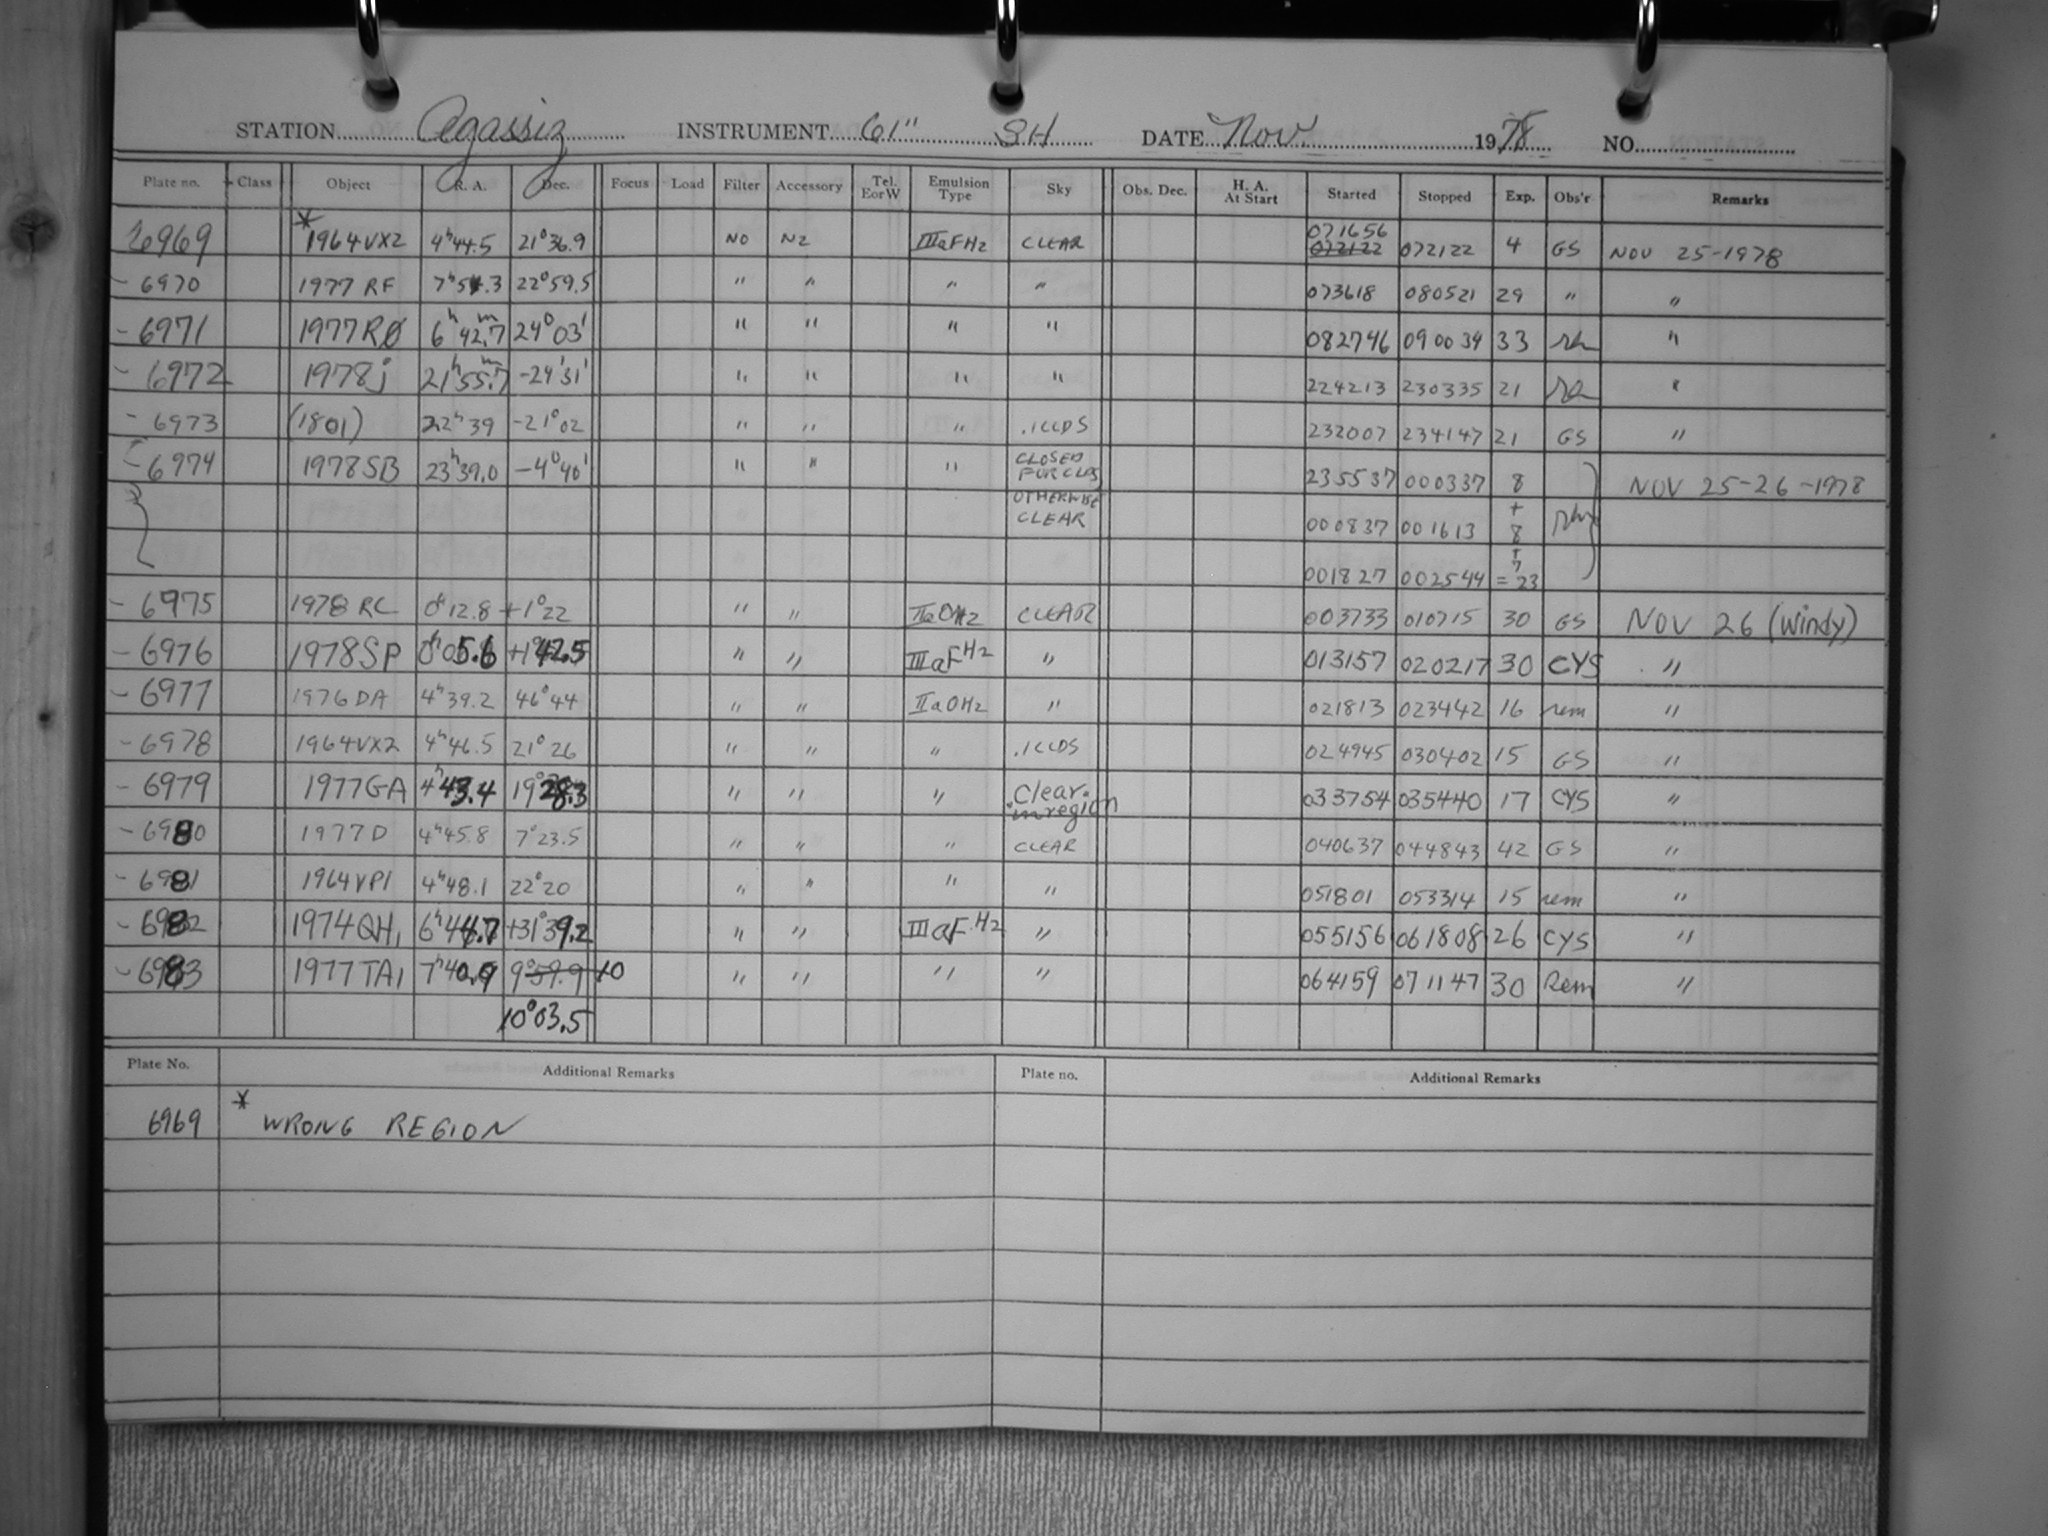 STATION Agassiz INSTRUMENT 61" SH DATE Nov. 1978 NO.
Plate no. Class Object R. A. Dec. Focus Load Filter Accessory Tel. E or W Emulsion Type Sky Obs. Dec. H. A. At Start Started Stopped Exp. Obs'r Remarks
6969 *1964VX2 4h44.5 21°36.9 NO N2 IIIaFH2 CLEAR 071656 072122 072122 4 GS NOV 25-1978
- 6970 1977 RF 22°59.5 " " " " 073618 080521 29 " "
- 6971 1977RØ 6h 42m.7 24° 03' " " " " 082746 090034 33 "
- 6972 1978j 21h55m.7 -24°31' " " " " 224213 230335 21 "
- 6973 (1801) 22h 39 -21° 02 " " " .1CLDS 232007 234147 21 GS "
- 6974 1978SB 23h39.0 -4° 40' " " " CLOSED FOR CLDS 235537 000337 8 NOV 25-26-1978
OTHERWISE CLEAR 000837 001613 + 8
001827 002544 + 7 = 23
- 6975 1978 RC 0h12.8 +1°22 " " IIaOH2 CLEAR 003733 010715 30 GS NOV 26 (windy)
- 6976 1978SP 0h05.6 +1°42.5 " " IIIaFH2 " 013157 020217 30 CYS "
- 6977 1976DA 4h39.2 46°44 " " IIaOH2 " 021813 023442 16 rem "
- 6978 1964VX2 4h46.5 21°26 " " " .1CLDS 024945 030402 15 GS "
- 6979 1977GA 4h43.4 19°28.3 " " " Clear in region 033754 035440 17 CYS "
- 6980 1977D 4h45.8 7°23.5 " " " CLEAR 040637 044843 42 GS "
- 6981 1964VP1 4h48.1 22°20 " " " " 051801 053314 15 rem "
- 6982 1974QH1 6h44.7 +31°39.2 " " IIIaFH2 " 055156 061808 26 CYS "
- 6983 1977TA1 7h40.9 9°59.9 10 " " " " 064159 071147 30 Rem "
10°03.5
Plate No. Additional Remarks Plate no. Additional Remarks
6969 * WRONG REGION